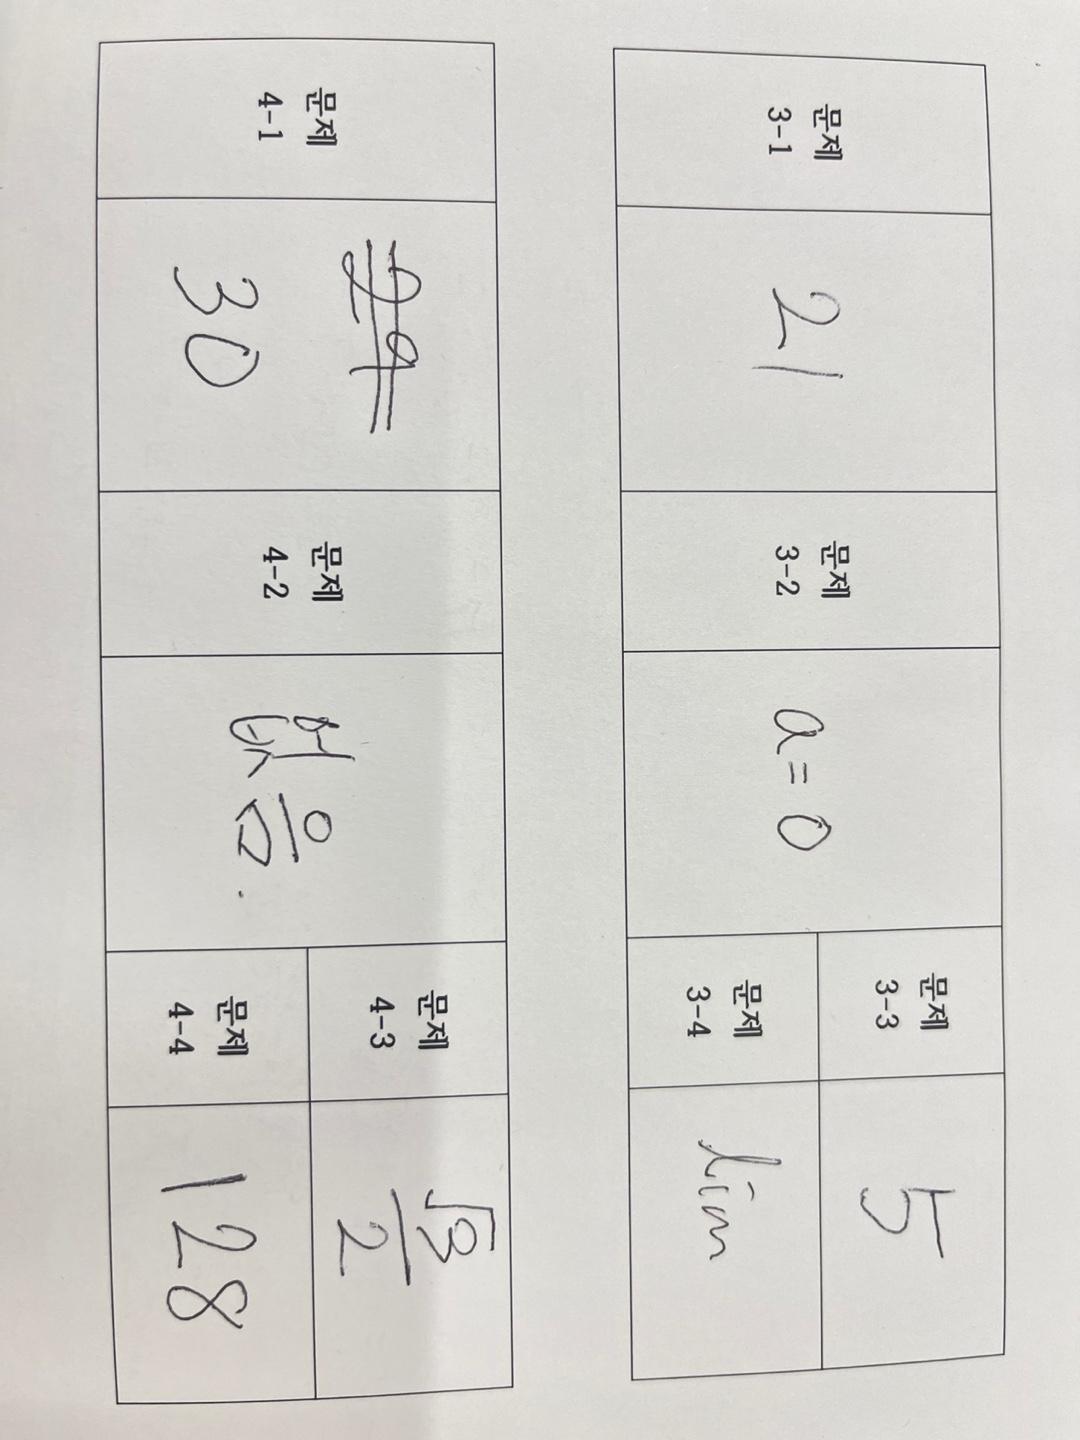 문제
3-1
21
문제
3-2
a=0
문제
3-3
5
문제
3-4
lim
문제
4-1
30
문제
4-2
없음.
문제
4-3
√3/2
문제
4-4
128